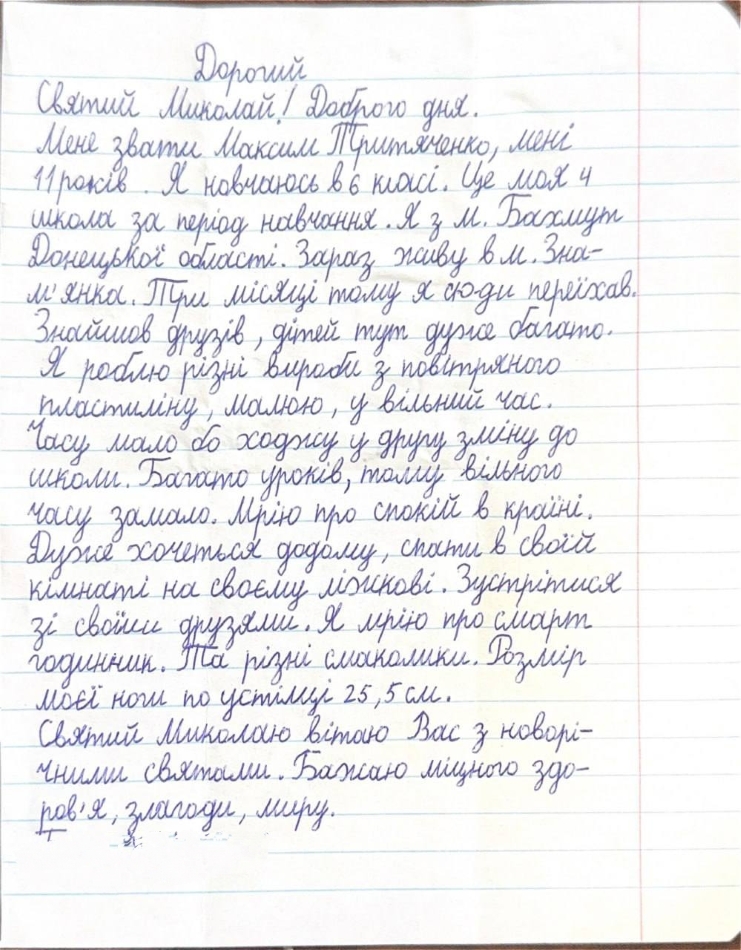 Дорогий
Святий Миколай! Доброго дня.
Мене звати Максим Тритяченко, мені
11 років. Я новчаюсь в 6 класі. Це моя 4
школа за період навчання. Я з м. Бахмут
Донецької області. Зараз живу в м. Зна-
м'янка. Три місяці тому я сюди переїхав.
Знайшов друзів, дітей тут дуже багато.
Я роблю різні вироби з повітряного
пластиліну, малюю, у вільний час.
Часу мало бо ходжу у другу зміну до
школи. Багато уроків, тому вільного
часу замало. Мрію про спокій в країні.
Дуже хочеться додому, спати в своїй
кімнаті на своєму ліжкові. Зустрітися
зі своїми друзями. Я мрію про смарт
годинник. Та різні смаколики. Розмір
моєї ноги по устілці 25,5 см.
Святий Миколаю вітаю Вас з новорі-
чними святами. Бажаю міцного здо-
ров'я, злагоди, миру.